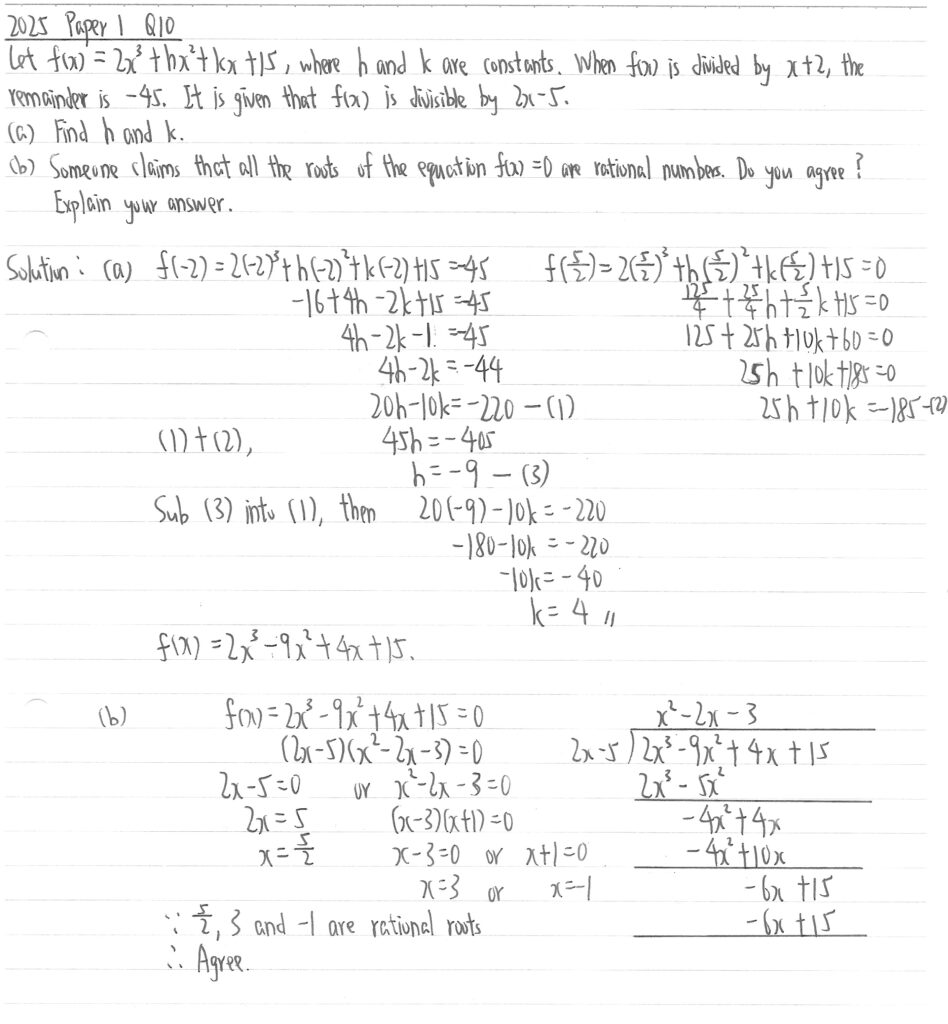 2025 Paper 1 Q10
Let f(x) = 2x³ + hx² + kx + 15, where h and k are constants. When f(x) is divided by x+2, the
remainder is -45. It is given that f(x) is divisible by 2x-5.
(a) Find h and k.
(b) Someone claims that all the roots of the equation f(x) = 0 are rational numbers. Do you agree?
Explain your answer.
Solution: (a) f(-2) = 2(-2)³ + h(-2)² + k(-2) + 15 = -45 f(5/2) = 2(5/2)³ + h(5/2)² + k(5/2) + 15 = 0
-16 + 4h - 2k + 15 = -45 125/4 + 25/4 h + 5/2 k + 15 = 0
4h - 2k - 1 = -45 125 + 25h + 10k + 60 = 0
4h - 2k = -44 25h + 10k + 185 = 0
20h - 10k = -220 - (1) 25h + 10k = -185 - (2)
(1) + (2), 45h = -405
h = -9 - (3)
Sub (3) into (1), then 20(-9) - 10k = -220
-180 - 10k = -220
-10k = -40
k = 4 //
f(x) = 2x³ - 9x² + 4x + 15.
(b) f(x) = 2x³ - 9x² + 4x + 15 = 0 x² - 2x - 3
(2x-5)(x²-2x-3) = 0 2x-5 ) 2x³ - 9x² + 4x + 15
2x-5 = 0 or x²-2x-3 = 0 2x³ - 5x²
2x = 5 (x-3)(x+1) = 0 -4x² + 4x
x = 5/2 x-3 = 0 or x+1 = 0 -4x² + 10x
x = 3 or x = -1 -6x + 15
∵ 5/2, 3 and -1 are rational roots -6x + 15
∴ Agree.